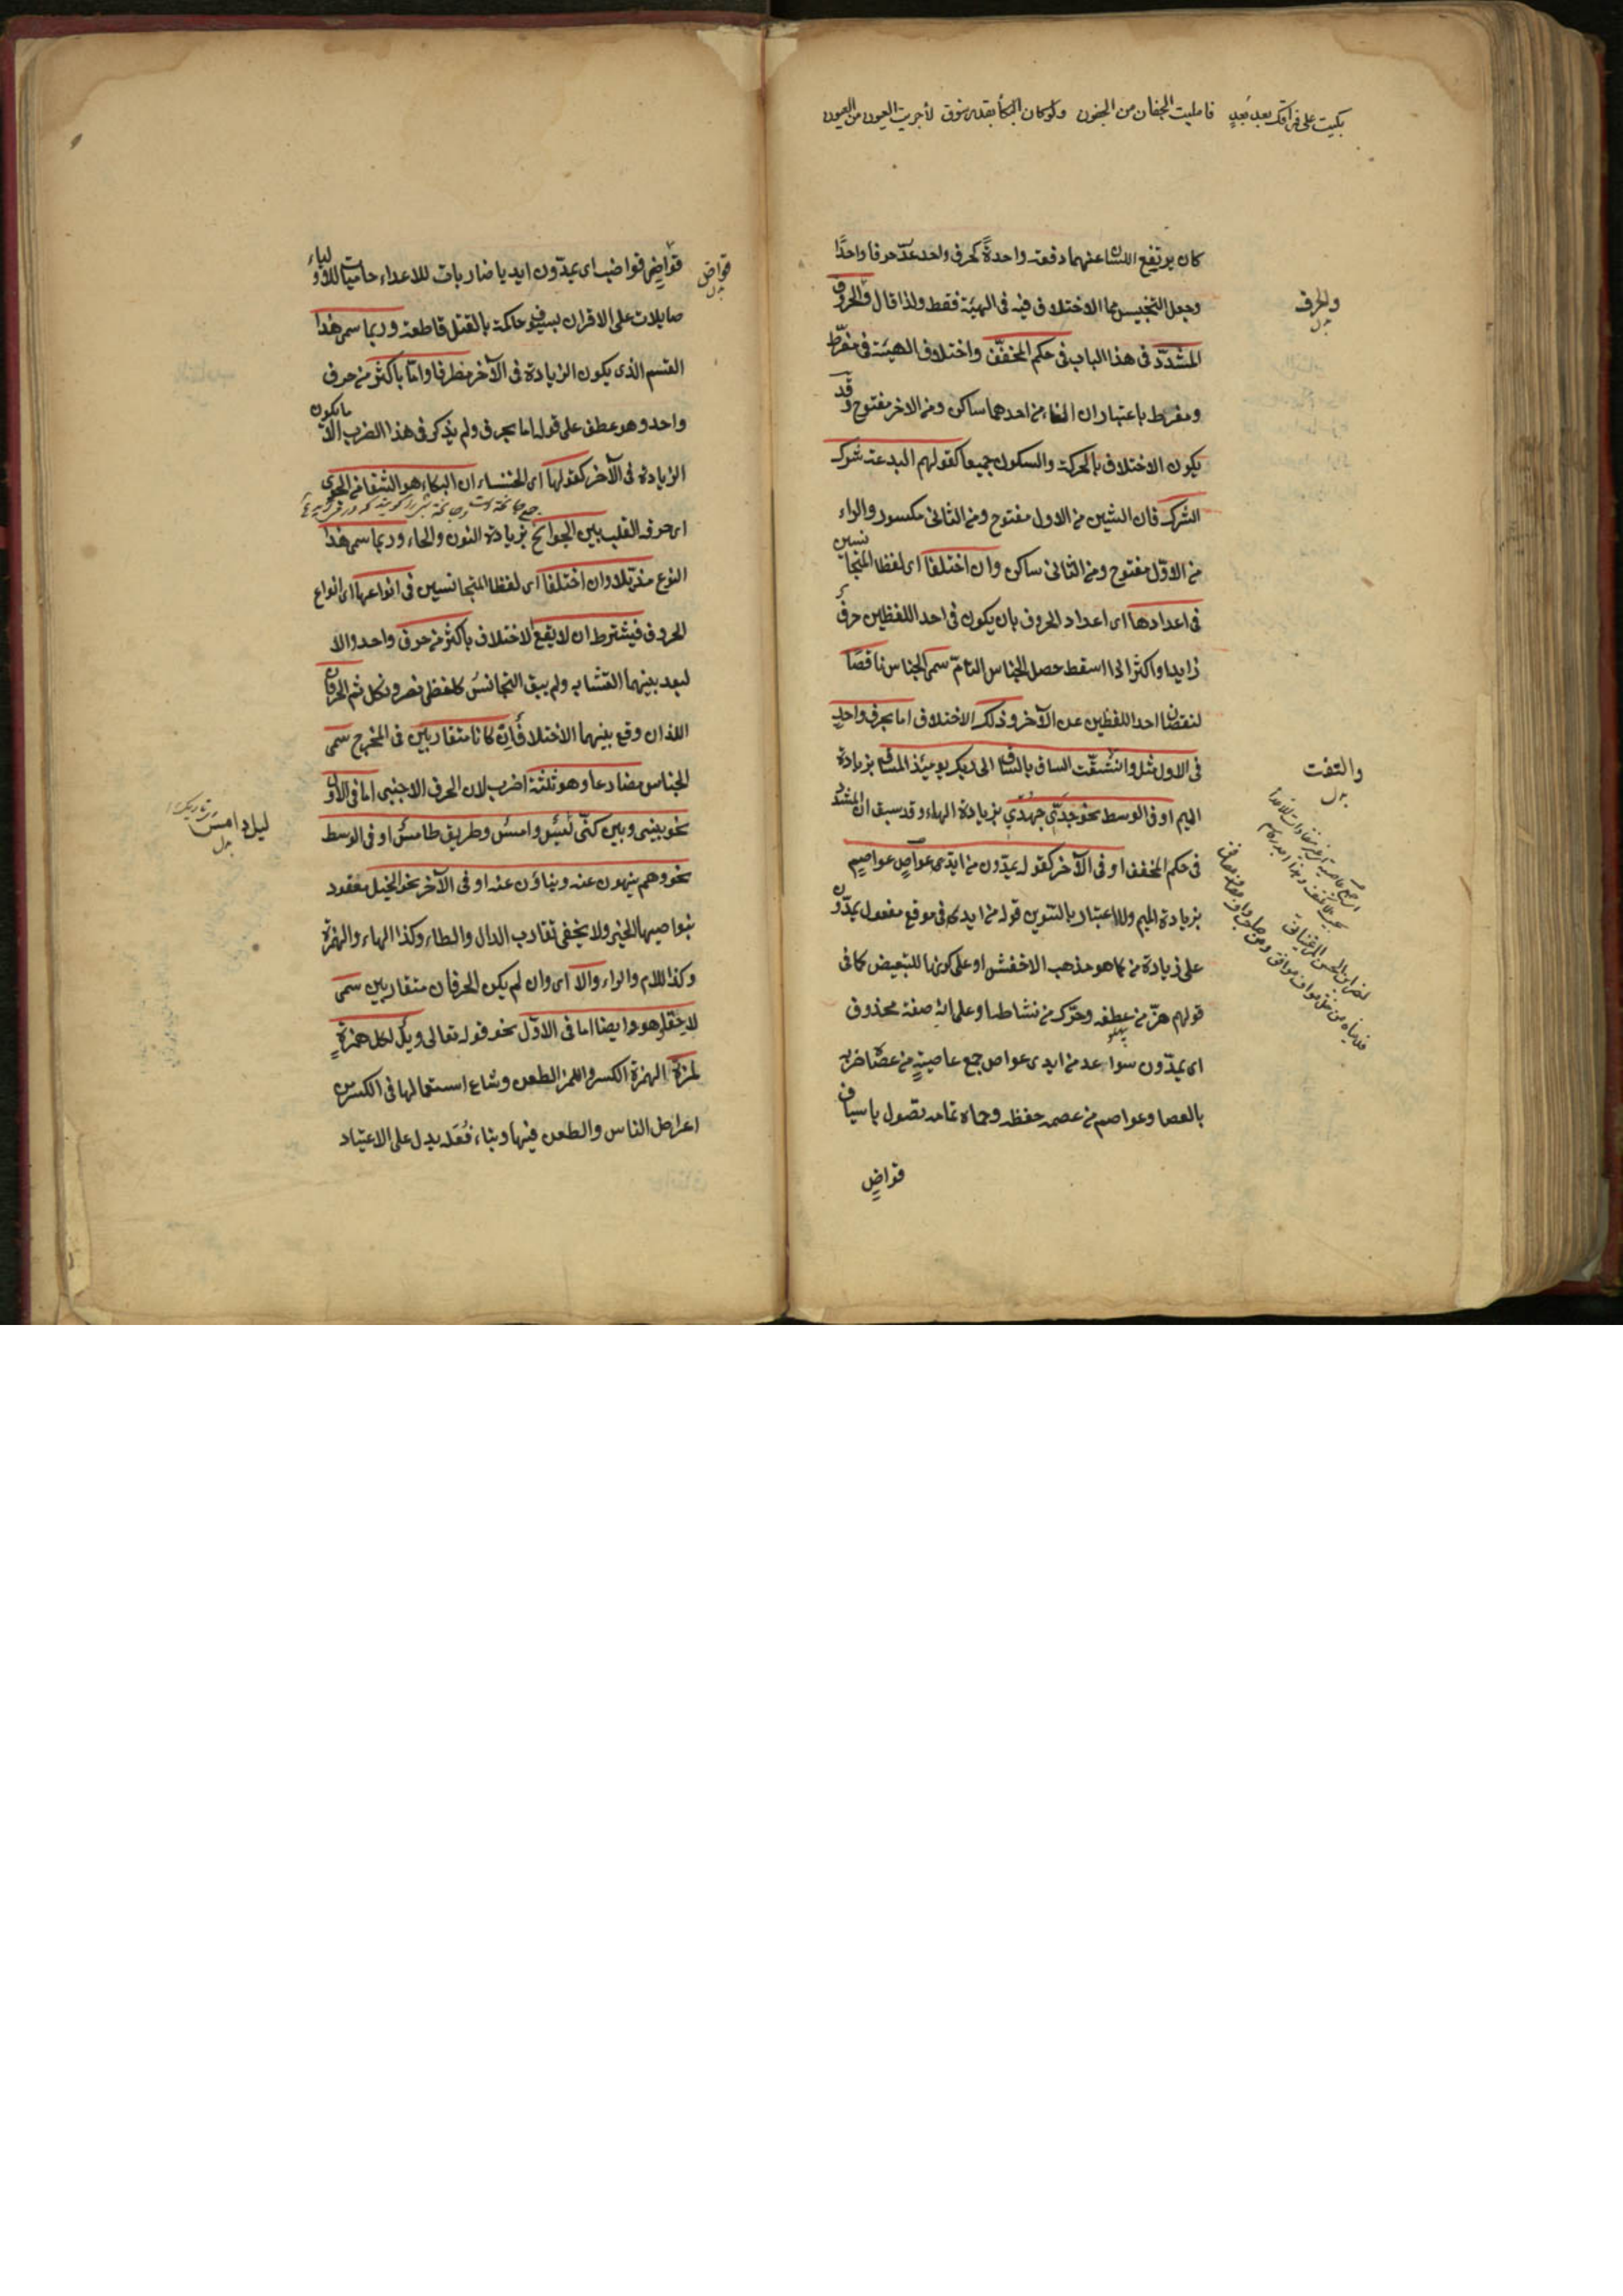 بكيت على فراقك بعد بعد فامليت الجفان من الجفون ولو كان البكا بقدر شوق لأجريت العيون من العيون
كان يرتفع اللسان عنهما دفعة واحدةً كحرف واحد عدّ حرفا واحدًا
وجعل التجنيس مما الاختلاف فيه فى الهيئة فقط ولذا قال والحرف
المشدّد فى هذا الباب فى حكم المخفّف واختلاف الهيئة فى مفرّط
ومفرط باعتبار ان الفاء من احدهما ساكن ومن الاخر مفتوح وقد
يكون الاختلاف بالحركة والسكون جميعا كقولهم البدعة شرك
الشرك فان الشين من الاول مفتوح ومن الثانى مكسور والراء
من الاوّل مفتوح ومن الثانى ساكن وان اختلفا اى لفظا المتجانسين
فى اعدادها اى اعداد الحروف بان يكون فى احد اللفظين حرف
زايد او اكثر اذا اسقط حصل الجناس التامّ سمى الجناس ناقصًا
لنقصان احد اللفظين عن الآخر وذلك الاختلاف اما بحرف واحدٍ
فى الاول مثل والتفّت الساق بالساق الى ربك يومئذ المساق بزيادة
الميم او فى الوسط نحو جدّى جهدى بزيادة الهاء وقد سبق ان المشدد
فى حكم المخفف او فى الآخر كقوله يمدّون من ايدى عواصٍ عواصم
بزيادة الميم ولا اعتبار بالتنوين قوله من ايدى فى موقع مفعول يمدّون
على زيادة من كما هو مذهب الاخفش او على كونها للتبعيض كما فى
قولهم هزّ من عطفه وحرّك من نشاطه او على انه صفة محذوف
اى يمدّون سواعد من ايدى عواص جمع عاصيةٍ من عصاه ضربه
بالعصا وعواصم من عصمه حفظه وحماه تمامه تصول باسياف
قواضٍ
والحرف
والتفت
قواضٍ قواضب اى يمدّون ايديا ضاربات للاعداء حاميات للاولياء
صايلات على الاقران بسيوف حاكمة بالقتل قاطعة وربما سمى هذا
القسم الذى يكون الزيادة فى الآخر مطرفا واما باكثر من حرف
واحد وهو عطف على قوله اما بحرف ولم يذكر فى هذا الضرب الا ما يكون
الزيادة فى الآخر كقولها اى الخنساء ان البكاء هو الشفا من الجوى
اى حرقة القلب بين الجوانح بزيادة النون والحاء وربما سمى هذا
النوع مذيّلا وان اختلفا اى لفظا المتجانسين فى انواعها اى انواع
الحروف فيشترط ان لا يقع الاختلاف باكثر من حرف واحد والا
لبعد بينهما التشابه ولم يبق التجانس كلفظى نصر ونكل ثم الحرفان
اللذان وقع بينهما الاختلاف ان كانا متقاربين فى المخرج سمى
الجناس مضارعا وهو ثلثة اضرب لان الحرف الاجنبى اما فى الاول
نحو بينى وبين كنّى ليل دامس وطريق طامس او فى الوسط
نحو وهم ينهون عنه وينأون عنه او فى الآخر نحو الخيل معقود
بنواصيها الخير ولا يخفى تقارب الدال والطاء وكذا الهاء والهمزة
وكذا اللام والراء والا اى وان لم يكن الحرفان متقاربين سمى
لاحقا وهو ايضا اما فى الاوّل نحو قوله تعالى ويل لكل همزةٍ
لمزة الهمزة الكسر واللمز الطعن وشاع استعمالها فى الكسر من
اعراض الناس والطعن فيها وبناء فُعَلة يدل على الاعتياد
قواض
ليل دامس